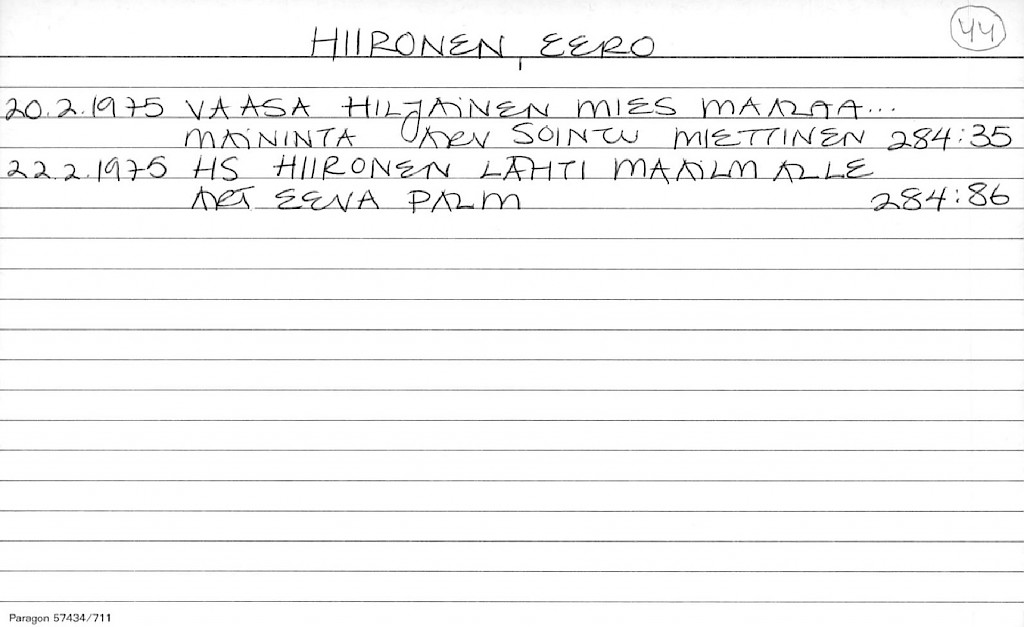 44
HIIRONEN, EERO
20.2.1975 VAASA HILJAINEN MIES MAALAA...
MAININTA ARV SOINTU MIETTINEN 284:35
22.2.1975 HS HIIRONEN LÄHTI MAAILMALLE
ART EEVA PALM 284:86
Paragon 57434/711